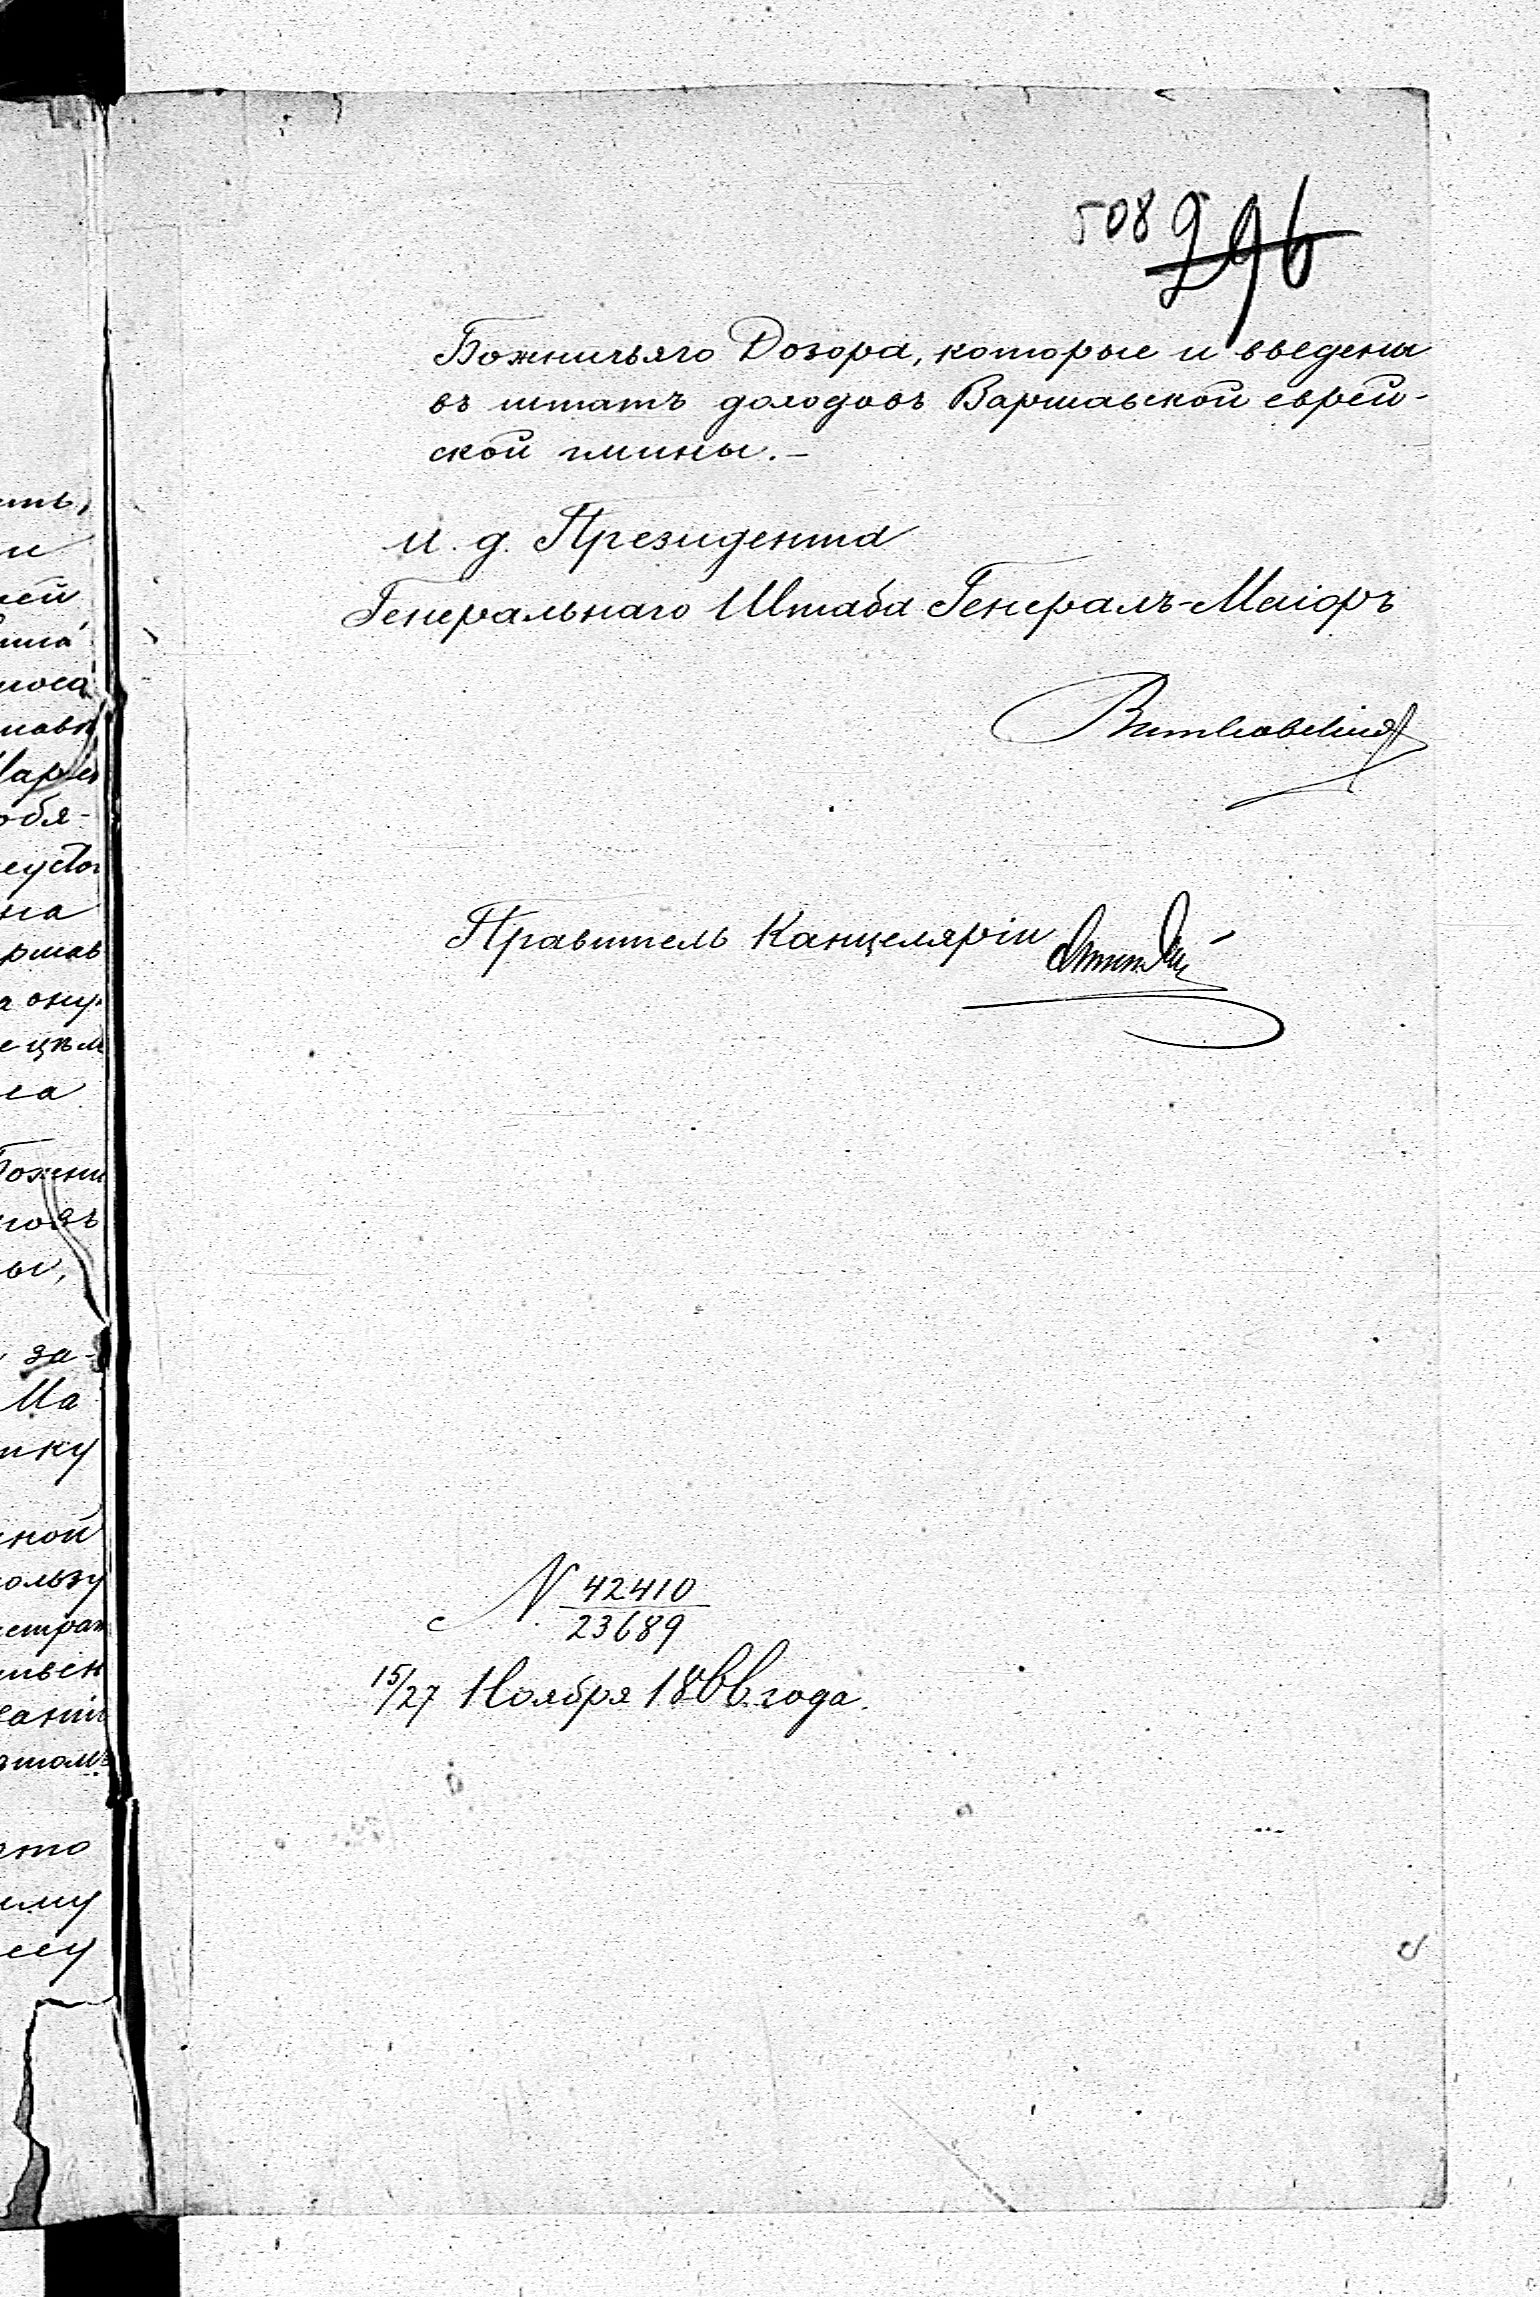 508 296
Божничьяго Дозора, которые и введены
въ штатъ доходовъ Варшавской еврей-
ской гмины.-
И. д. Президента
Генеральнаго Штаба Генералъ-Маіоръ
Витковскій
Правитель Канцеляріи
N. 42410
23689
15/27 Ноября 1866 года.
ть,
ей
обя-
на
оку-
Божни
ы,
за-
Ма
ной
ользу
ему